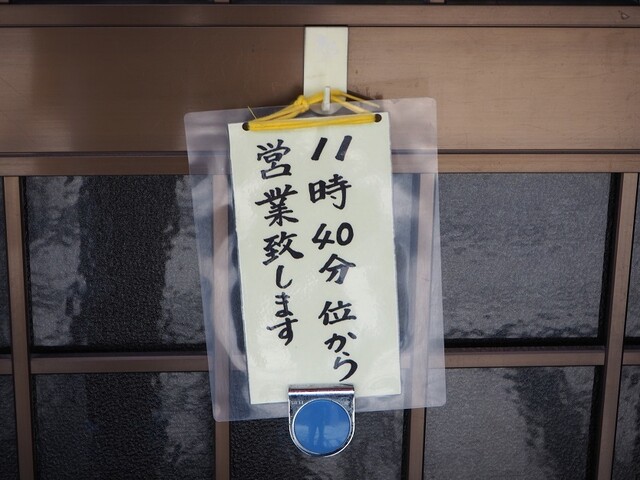 11時40分位から
営業致します